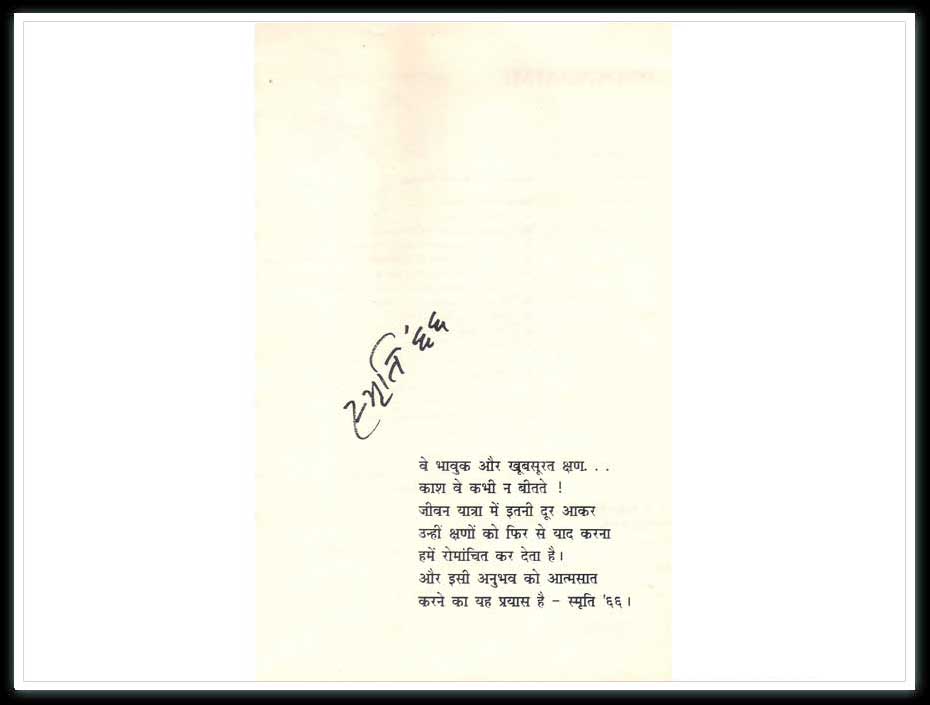 स्मृति '६६
वे भावुक और खूबसूरत क्षण...
काश वे कभी न बीतते !
जीवन यात्रा में इतनी दूर आकर
उन्हीं क्षणों को फिर से याद करना
हमें रोमांचित कर देता है।
और इसी अनुभव को आत्मसात
करने का यह प्रयास है - स्मृति '६६।